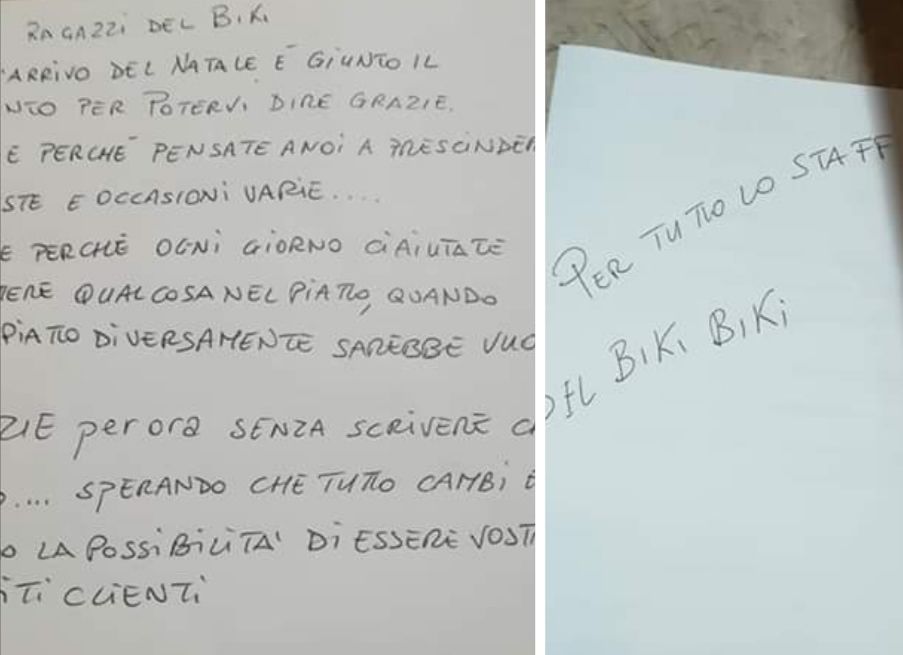 RAGAZZI DEL BIKI
'ARRIVO DEL NATALE È GIUNTO IL
NTO PER POTERVI DIRE GRAZIE.
E PERCHÉ PENSATE A NOI A PRESCINDER
STE E OCCASIONI VARIE....
E PERCHÉ OGNI GIORNO CI AIUTATE
TERE QUALCOSA NEL PIATTO, QUANDO
PIATTO DIVERSAMENTE SAREBBE VUO
ZIE per ora SENZA SCRIVERE C
.... SPERANDO CHE TUTTO CAMBI E
O LA POSSIBILITA' DI ESSERE VOST
ITI CLIENTI
PER TUTTO LO STAFF
DEL BIKI BIKI